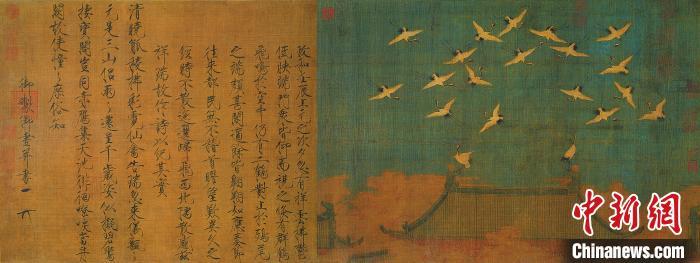 政和壬辰上元之次夕忽有祥雲拂鬱
低映端門眾皆仰而視之倏有群鶴
飛鳴於空中仍有二鶴對止於鴟尾
之端頗甚閒適餘皆翱翔如應奏節
往來都民無不稽首瞻望歎異久之
經時不散迤邐歸飛西北隅散感茲
祥瑞故作詩以紀其實
清曉觚稜拂彩霓仙禽告瑞忽來儀飄〻
元是三山侶兩〻還呈千歲姿似擬碧鸞
棲寶閣豈同赤雁集天池徘徊嘹唳當丹
闕故使憧〻庶俗知
御製御畫并書
中新网
Chinanews.com